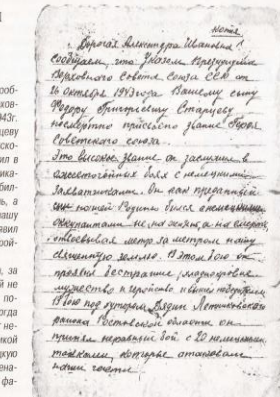 копия
Дорогая Александра Ивановна!
Сообщаем, что Указом Президиума
Верховного Совета Союза ССР от
26 октября 1943 года Вашему сыну
Федору Григорьевичу Старцеву
посмертно присвоено звание Героя
Советского Союза.
Это высокое звание он заслужил в
ожесточённых боях с немецкими
захватчиками. Он как преданный
сын нашей Родины бился с немецкими
оккупантами не на жизнь, а на смерть,
отвоёвывая метр за метром нашу
священную землю. В этом бою он
проявил бесстрашие,
мужество и геройство и
В бою под хутором
района Ростовской области он
принял неравный бой с 20 немецкими
танками, которые атаковали
наши части.
роб-
ков-
943г.
цеву
ско-
ил в
ика-
бил-
ь, а
ашу
авил
рой-
, за
й не
по-
огда
не-
мой
цкую
ена-
фа-